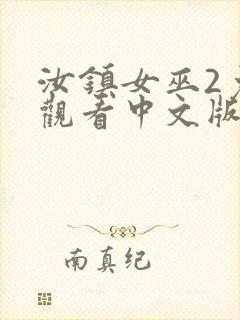 汝鎮女巫2
觀看中文版
南真纪